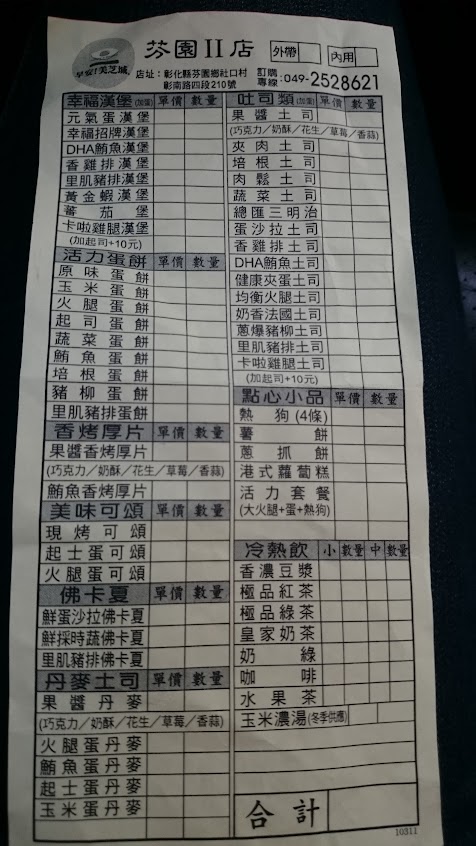 早安!美芝城
芬園II店
外帶
內用
店址:彰化縣芬園鄉社口村
彰南路四段210號
訂購專線:049-2528621
幸福漢堡(加蛋) 單價 數量
元氣蛋漢堡
幸福招牌漢堡
DHA鮪魚漢堡
香雞排漢堡
里肌豬排漢堡
黃金蝦漢堡
蕃茄堡
卡啦雞腿漢堡
(加起司+10元)
活力蛋餅 單價 數量
原味蛋餅
玉米蛋餅
火腿蛋餅
起司蛋餅
蔬菜蛋餅
鮪魚蛋餅
培根蛋餅
豬柳蛋餅
里肌豬排蛋餅
香烤厚片 單價 數量
果醬香烤厚片
(巧克力/奶酥/花生/草莓/香蒜)
鮪魚香烤厚片
美味可頌 單價 數量
現烤可頌
起士蛋可頌
火腿蛋可頌
佛卡夏 單價 數量
鮮蛋沙拉佛卡夏
鮮採時蔬佛卡夏
里肌豬排佛卡夏
丹麥土司 單價 數量
果醬丹麥
(巧克力/奶酥/花生/草莓/香蒜)
火腿蛋丹麥
鮪魚蛋丹麥
起士蛋丹麥
玉米蛋丹麥
吐司類(加蛋) 單價 數量
果醬土司
(巧克力/奶酥/花生/草莓/香蒜)
夾肉土司
培根土司
肉鬆土司
蔬菜土司
總匯三明治
蛋沙拉土司
香雞排土司
DHA鮪魚土司
健康夾蛋土司
均衡火腿土司
奶香法國土司
蔥爆豬柳土司
里肌豬排土司
卡啦雞腿土司
(加起司+10元)
點心小品 單價 數量
熱狗(4條)
薯餅
蔥抓餅
港式蘿蔔糕
活力套餐
(大火腿+蛋+熱狗)
冷熱飲 小 數量 中 數量
香濃豆漿
極品紅茶
極品綠茶
皇家奶茶
奶綠
咖啡
水果茶
玉米濃湯(冬季供應)
合計
10311